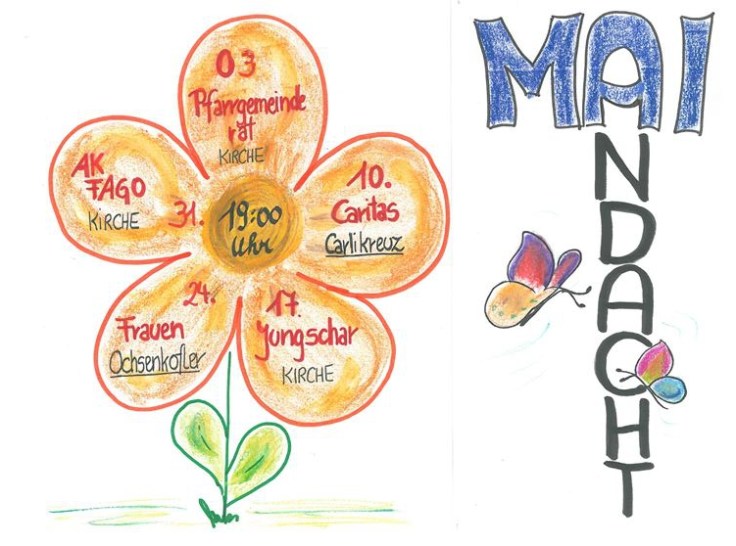 03
Pfarrgemeinde
rat
KIRCHE
10.
Caritas
Carlikreuz
17.
Jungschar
KIRCHE
24.
Frauen
Ochsenkofler
31.
AK
FAGO
KIRCHE
19:00
Uhr
MAI
ANDACHT